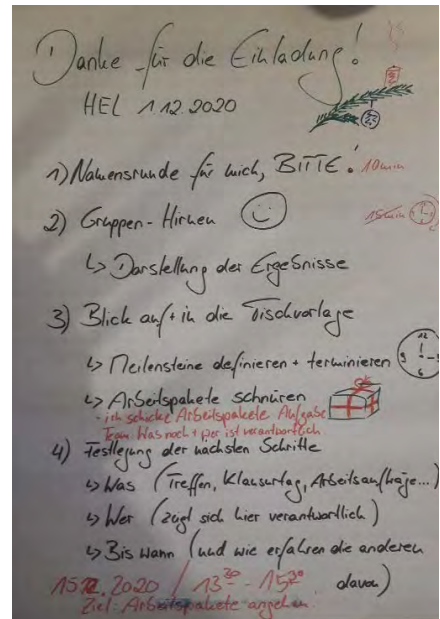 Danke für die Einladung!
HEL 1.12.2020
1) Namensrunde für mich, BITTE! 10min
2) Gruppen-Hirnen 15min
↳ Darstellung der Ergebnisse
3) Blick auf + in die Tischvorlage
↳ Meilensteine definieren + terminieren
↳ Arbeitspakete schnüren
- ich schicke Arbeitspakete Aufgabe
Team: Was noch + wer ist verantwortlich
4) Festlegung der nächsten Schritte
↳ Was (Treffen, Klausurtag, Arbeitsaufträge...)
↳ Wer (zeigt sich hier verantwortlich)
↳ Bis wann (und wie erfahren die anderen
15.12.2020 / 13³⁰ - 15³⁰ davon)
Ziel: Arbeitspakete angehen.